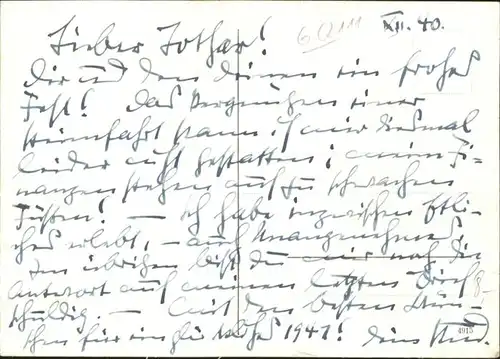 Lieber Lothar! XII. 40.
Dir und den deinen ein frohes
Fest! Das Vergnügen einer
Heimfahrt kann ich mir diesmal
leider nicht gestatten; meine Fi-
nanzen stehen auf zu schwachen
Füßen! — Ich habe inzwischen Etli-
ches erlebt, – auch Unangenehmes!
Im übrigen bist du mir noch die
Antwort auf meinen letzten Brief
schuldig. — Mit den besten Wün-
schen für ein glückliches 1941! dein
4915